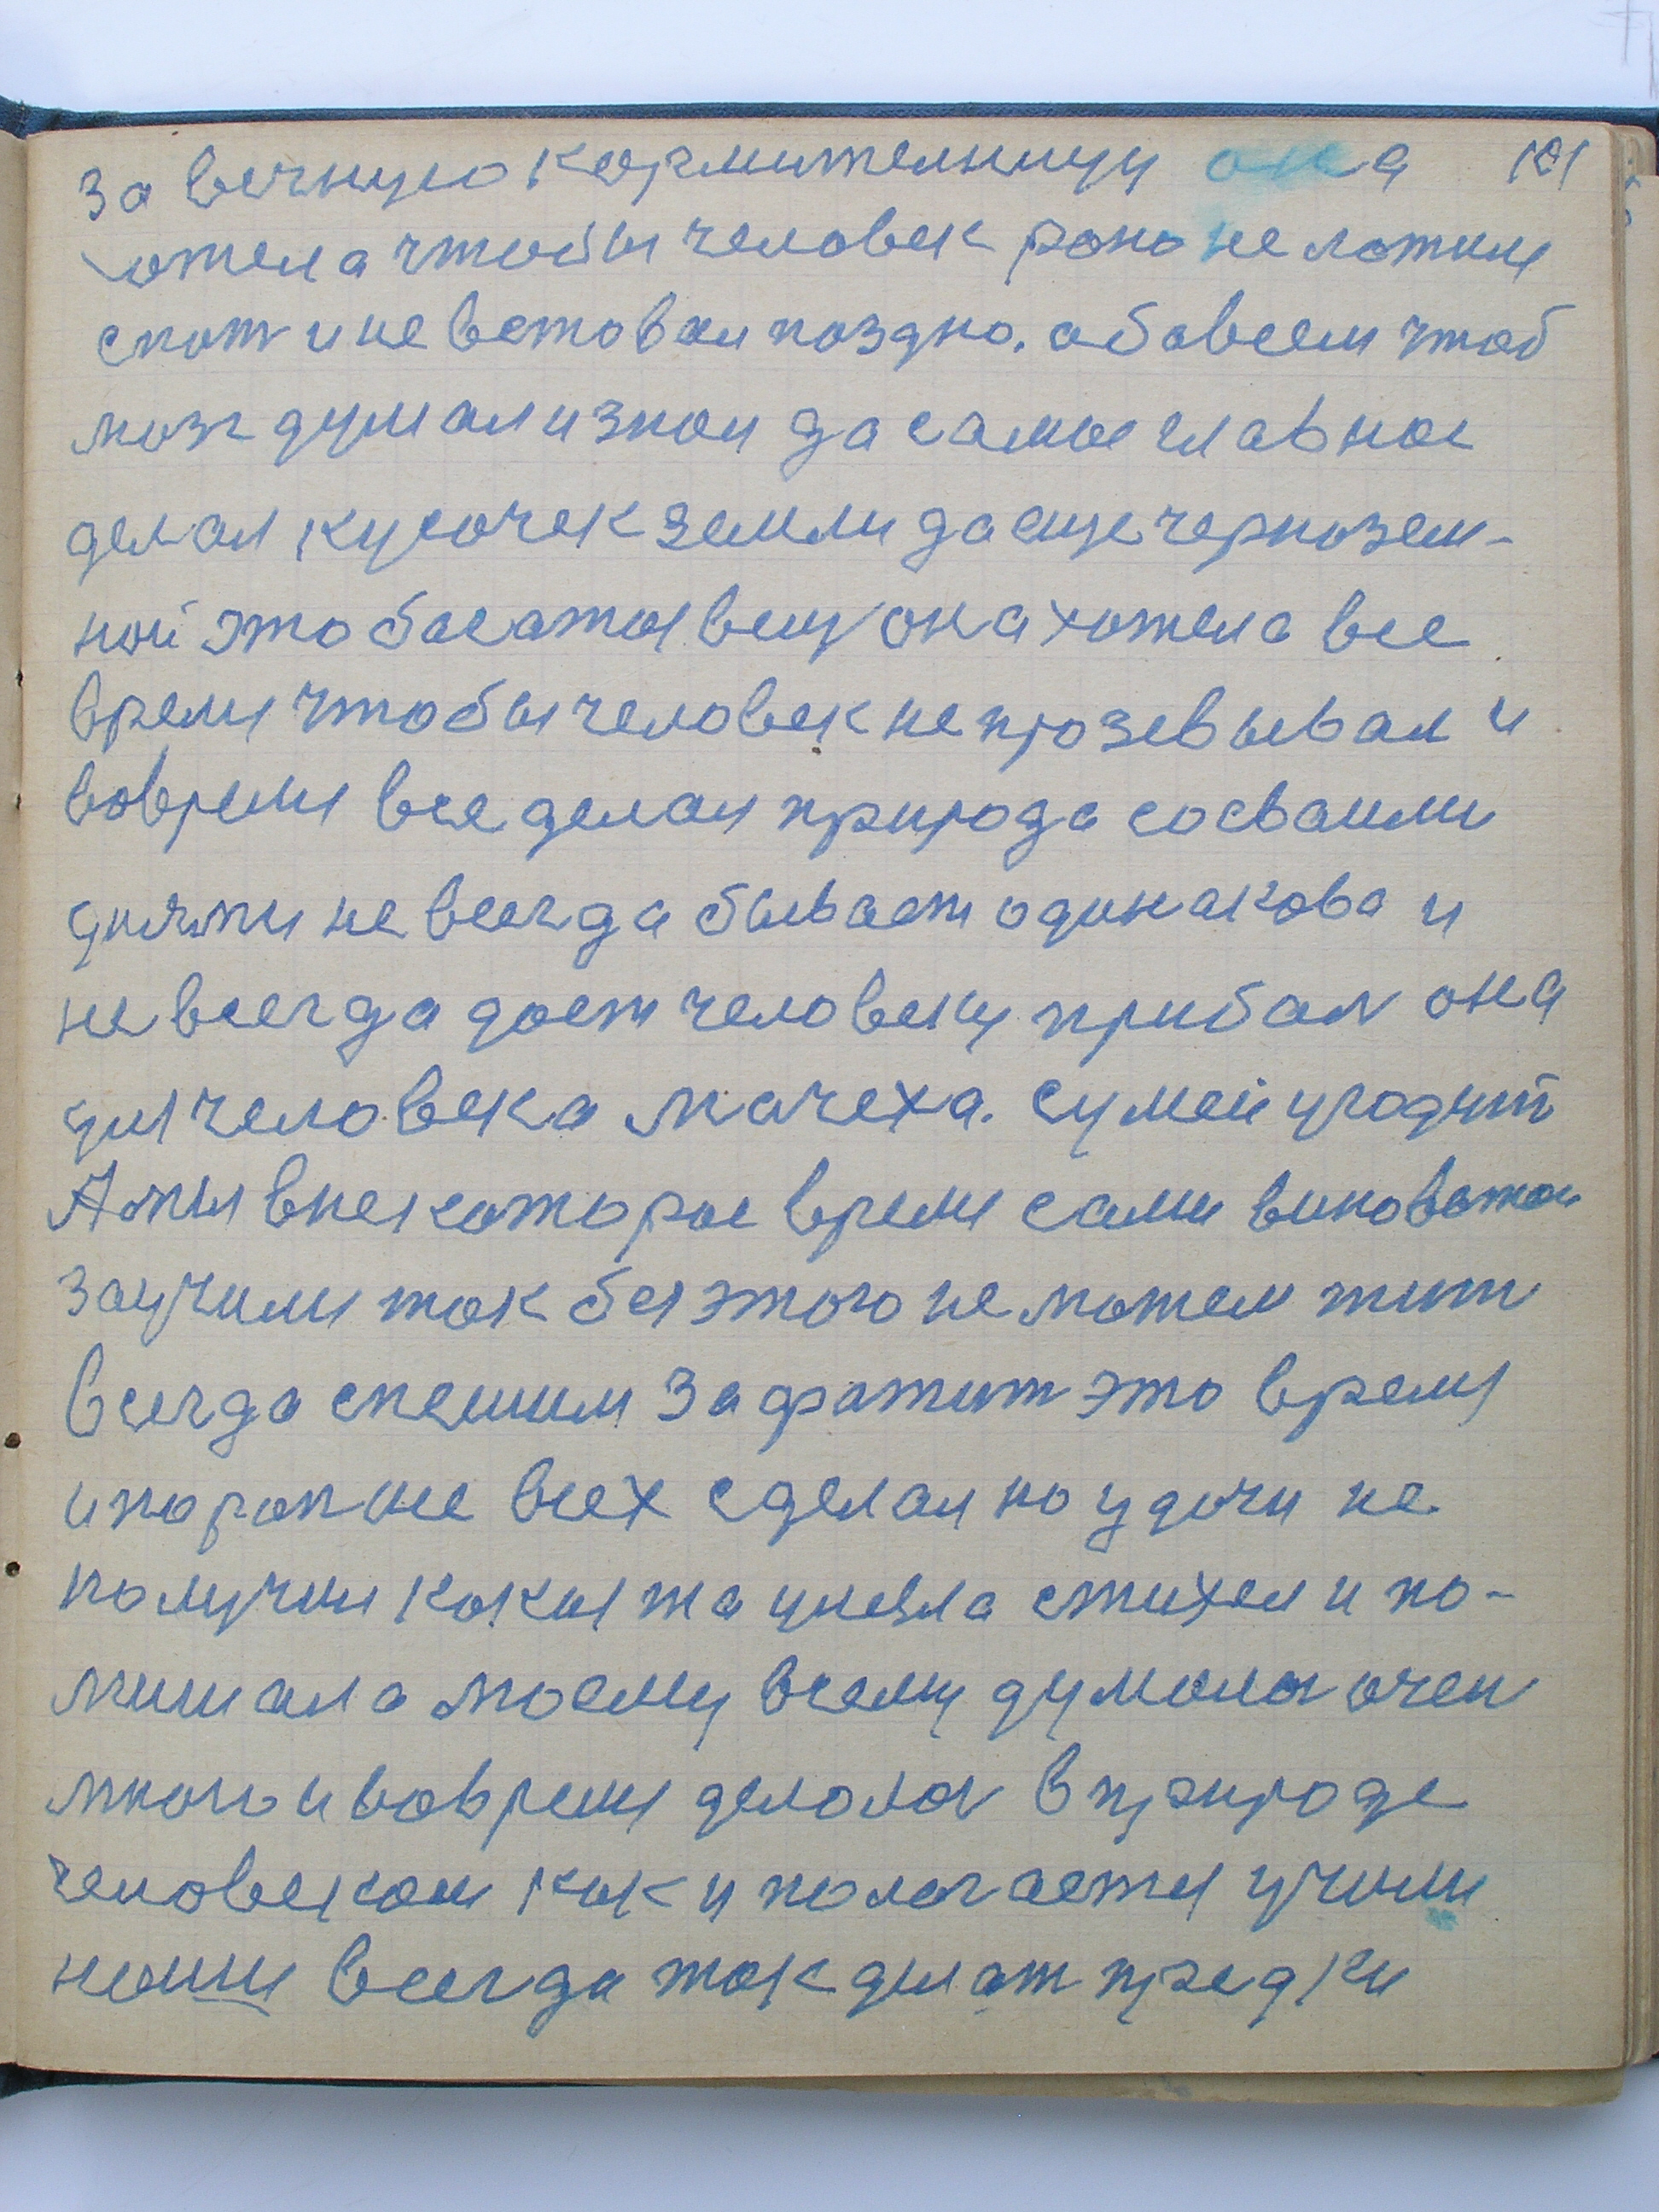 за вечную кормителницу она 101
хотела чтобы человек рано не ложил
спат и не встовал поздно. а бо всем чтоб
мозг думал и знал да самое главное
делал кусочек земли да еще чернозем-
ной это багатая вещ она хотела все
время чтобы человек не прозевывал и
вовремя все делал природа со сваими
днями не всегда бывает одинакова и
не всегда дает человеку прибал она
для человека мачеха. сумей угодит
А мы в некоторое время сами виноватои
заучили так без этого не можем жит
всегда спешим зафатит это время
и поранше всех сделал но удачи не
получил какая та улезла стихея и по-
мишала моему всему думалос очен
много и вовремя делалос в природе
человеком как и пологается учили
наши всегда так делат предки